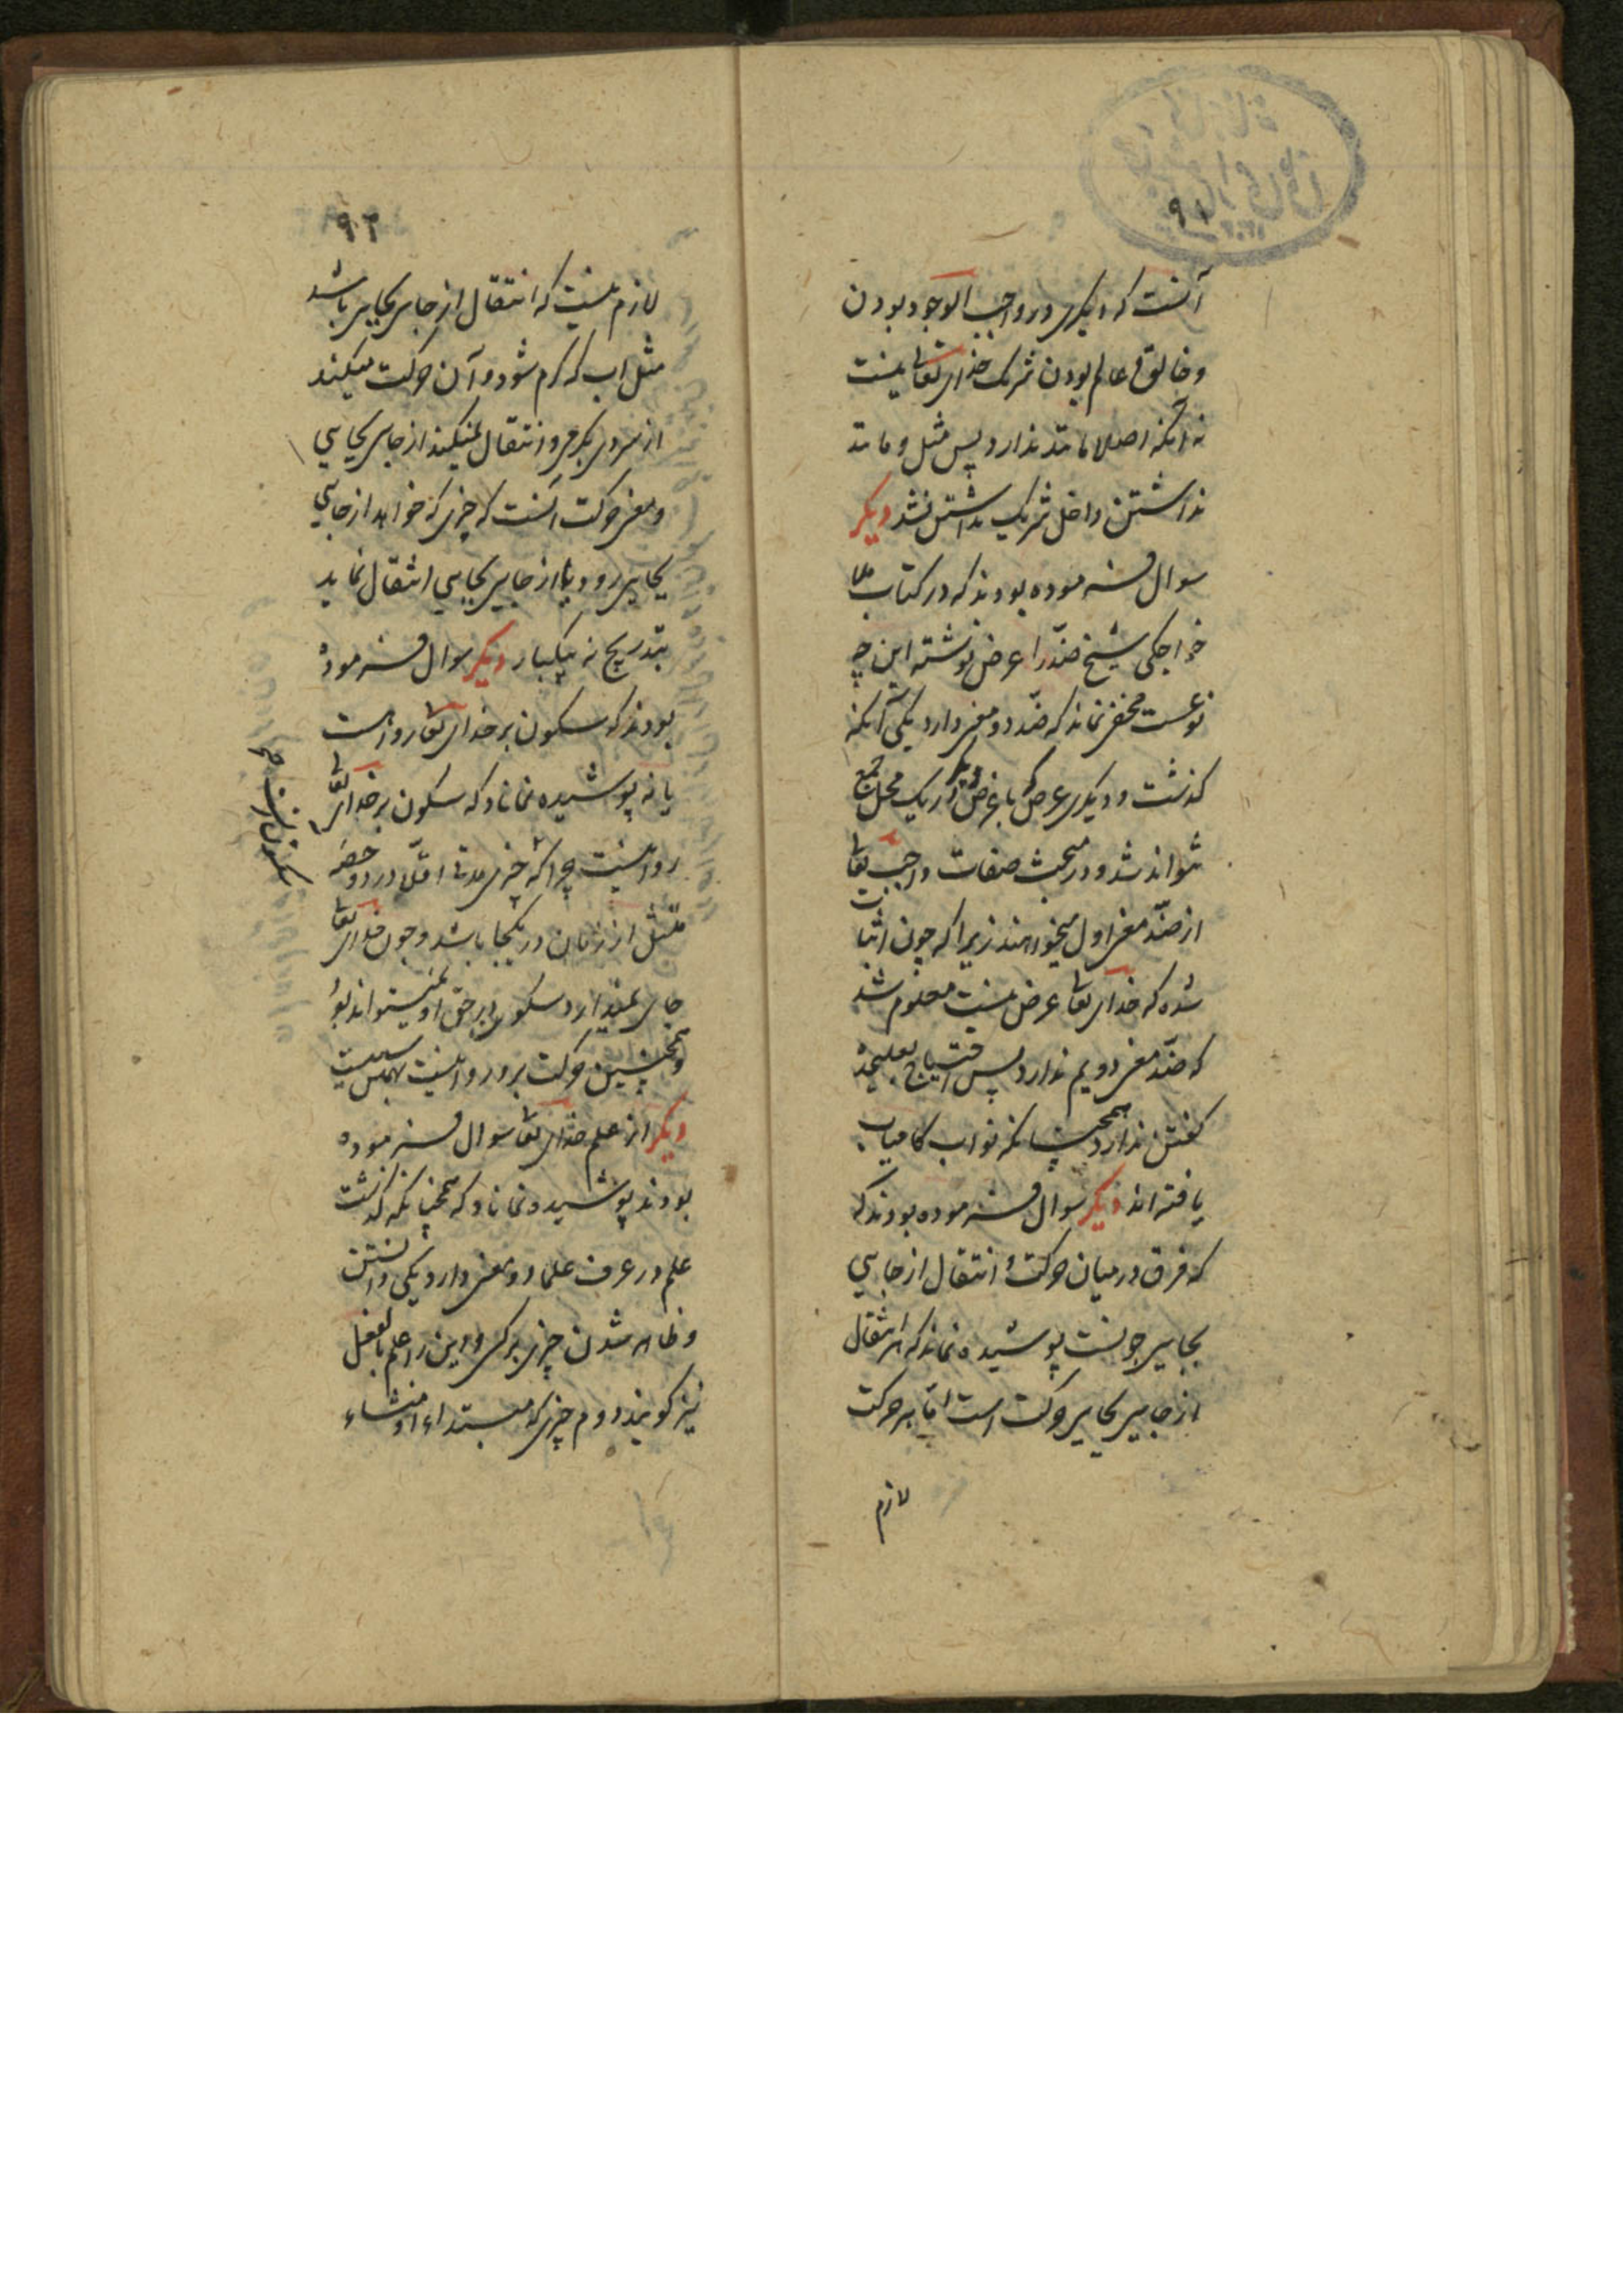 ۹۱
آنست که دیگری در واجب الوجود بودن
و خالق عالم بودن شریک خدای تعالی نیست
نه آنکه اصلا مانند ندارد پس مثل و مانند
نداشتن داخل شریک نداشتن نشد دیگر
سوال فرموده بودند که در کتاب ملا
خواجکی شیخ ضد را عرض نوشته این چه
نوعست مخفی نماند که ضد دو معنی دارد یکی آنکه
کذشت و دیکری عرضی که با عرض دیگر در یک محل جمع
نتواند شد و در مبحث صفات واجب تعالی
از ضد معنی اول میخواهند زیرا که چون اثبات
شده که خدای تعالی عرض نیست معلوم شد
که ضد معنی دویم ندارد پس احتیاج بعلیحده
کفتن ندارد همچنانکه نواب کامیاب
یافته اند دیگر سوال فرموده بودند که
که فرق در میان حرکت و انتقال از جایی
بجایی چونست پوشیده نماند که هر انتقال
از جایی بجایی حرکت است اما هر حرکت
لازم
۹۲
لازم نیست که انتقال از جایی بجایی باشد
مثل اب که کرم شود و آن حرکت میکند
از سردی بکرمی و انتقال نمیکند از جایی بجایی
و معنی حرکت آنست که چیزی که خواهد از جایی
بجایی رود یا از جایی بجایی انتقال نماید
بتدریج نه بیکبار دیگر سوال فرموده
بودند که سکون بر خدای تعالی رواست
یا نه پوشیده نماناد که سکون بر خدای تعالی
روا نیست چرا که چیزی مدتی اقلا در دو حصه
مثل از زمان در یکجا باشد و چون خدای تعالی
جای ندارد سکون در حق او نمیتواند بود
و همچنین حرکت برو روا نیست
دیگر از علم خدای تعالی سوال فرموده
بودند پوشیده نماناد که همچنانکه کذشت
علم در عرف علما دو معنی دارد یکی دانستن
و ظاهر شدن چیزی بر کسی و این را علم بالفعل
نیز کویند دوم چیزی که مبتداء و منشاء